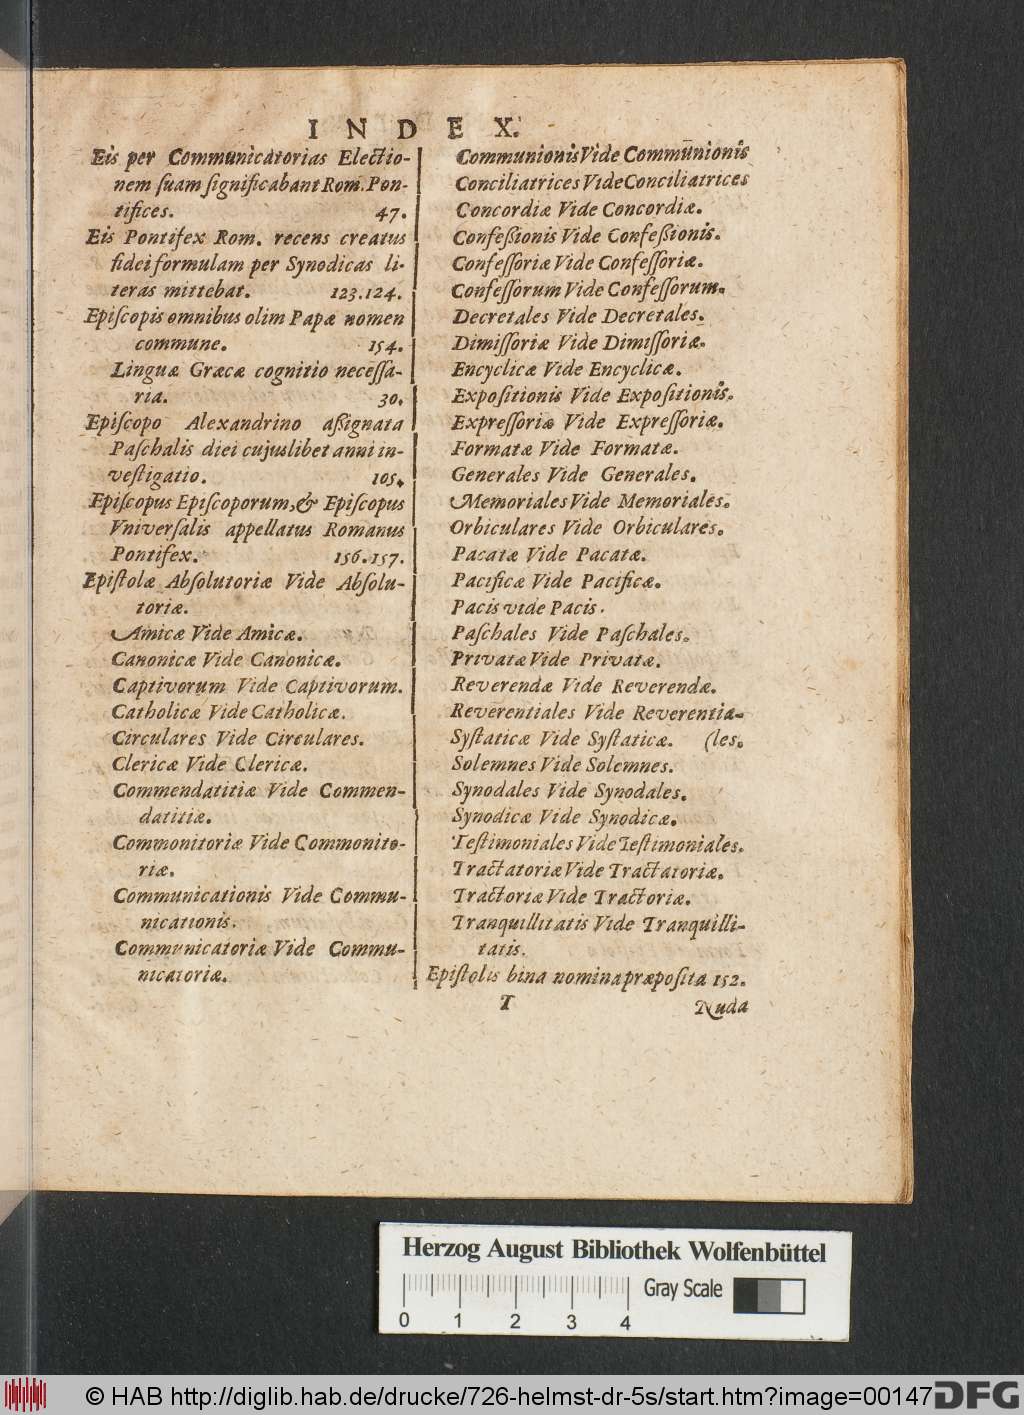 INDEX.
Eis per Communicatorias Electio-
nem ſuam ſignificabant Rom. Pon-
tifices. 47.
Eis Pontifex Rom. recens creatus
fidei formulam per Synodicas li-
teras mittebat. 123.124.
Epiſcopis omnibus olim Papæ nomen
commune. 154.
Linguæ Græcæ cognitio neceſſa-
ria. 30.
Epiſcopo Alexandrino aſſignata
Paſchalis diei cujuslibet anni in-
veſtigatio. 105.
Epiſcopus Epiſcoporum, & Epiſcopus
Vniverſalis appellatus Romanus
Pontifex. 156.157.
Epiſtolæ Abſolutoriæ Vide Abſolu-
toriæ.
Amicæ Vide Amicæ.
Canonicæ Vide Canonicæ.
Captivorum Vide Captivorum.
Catholicæ Vide Catholicæ.
Circulares Vide Circulares.
Clericæ Vide Clericæ.
Commendatitiæ Vide Commen-
datitiæ.
Commonitoriæ Vide Commonito-
riæ.
Communicationis Vide Commu-
nicationis.
Communicatoriæ Vide Commu-
nicatoriæ.
Communionis Vide Communionis
Conciliatrices Vide Conciliatrices
Concordiæ Vide Concordiæ.
Confeßionis Vide Confeßionis.
Confeſſoriæ Vide Confeſſoriæ.
Confeſſorum Vide Confeſſorum.
Decretales Vide Decretales.
Dimiſſoriæ Vide Dimiſſoriæ.
Encyclicæ Vide Encyclicæ.
Expoſitionis Vide Expoſitionis.
Expreſſoriæ Vide Expreſſoriæ.
Formatæ Vide Formatæ.
Generales Vide Generales.
Memoriales Vide Memoriales.
Orbiculares Vide Orbiculares.
Pacatæ Vide Pacatæ.
Pacificæ Vide Pacificæ.
Pacis vide Pacis.
Paſchales Vide Paſchales.
Privatæ Vide Privatæ.
Reverendæ Vide Reverendæ.
Reverentiales Vide Reverentia-
Syſtaticæ Vide Syſtaticæ. (les.
Solemnes Vide Solemnes.
Synodales Vide Synodales.
Synodicæ Vide Synodicæ.
Teſtimoniales Vide Teſtimoniales.
Tractatoriæ Vide Tractatoriæ.
Tractoriæ Vide Tractoriæ.
Tranquillitatis Vide Tranquilli-
tatis.
Epiſtolis bina nomina præpoſita 152.
T Nuda
Herzog August Bibliothek Wolfenbüttel
Gray Scale
0 1 2 3 4
© HAB http://diglib.hab.de/drucke/726-helmst-dr-5s/start.htm?image=00147
DFG